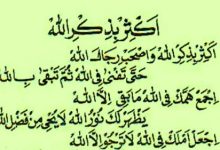 اَكْثِرْ بِذِكْرِ اللهْ
اَكْثِرْ بِذِكْرِ اللهْ وَاصْحَبْ رِجَالَ اللهْ
حَتَّى تَفْنَى فِي اللهْ ثُمَّ تَبْقَى بِاللهْ
اِجْمَعْ هَمَّكَ فِي اللهْ مَا بَقِيَ اِلَّا اللهْ
يَظْهَرْ لَكَ نُوْرُ اللهْ لَا يَحْيَ مِنْ فَضْلِ اللهْ
اِجْعَلْ اَمَلَكَ فِي اللهْ لَا تَرْجُوْ اِلَّا اللهْ